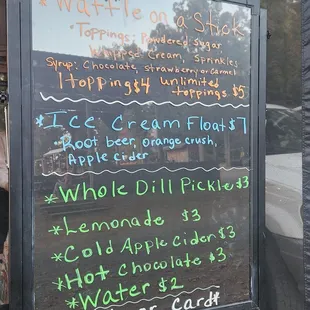 *Waffle on a Stick
Toppings: Powdered Sugar,
Whippse Cream, Sprinkles
Syrup: Chocolate, strawberry or Carmel
1 topping $4 unlimited
toppings $5
*Ice Cream Float $7
Root beer, orange crush,
Apple cider
*Whole Dill Pickle $3
*Lemonade $3
*Cold Apple Cider $3
*Hot Chocolate $3
*Water $2
Card*